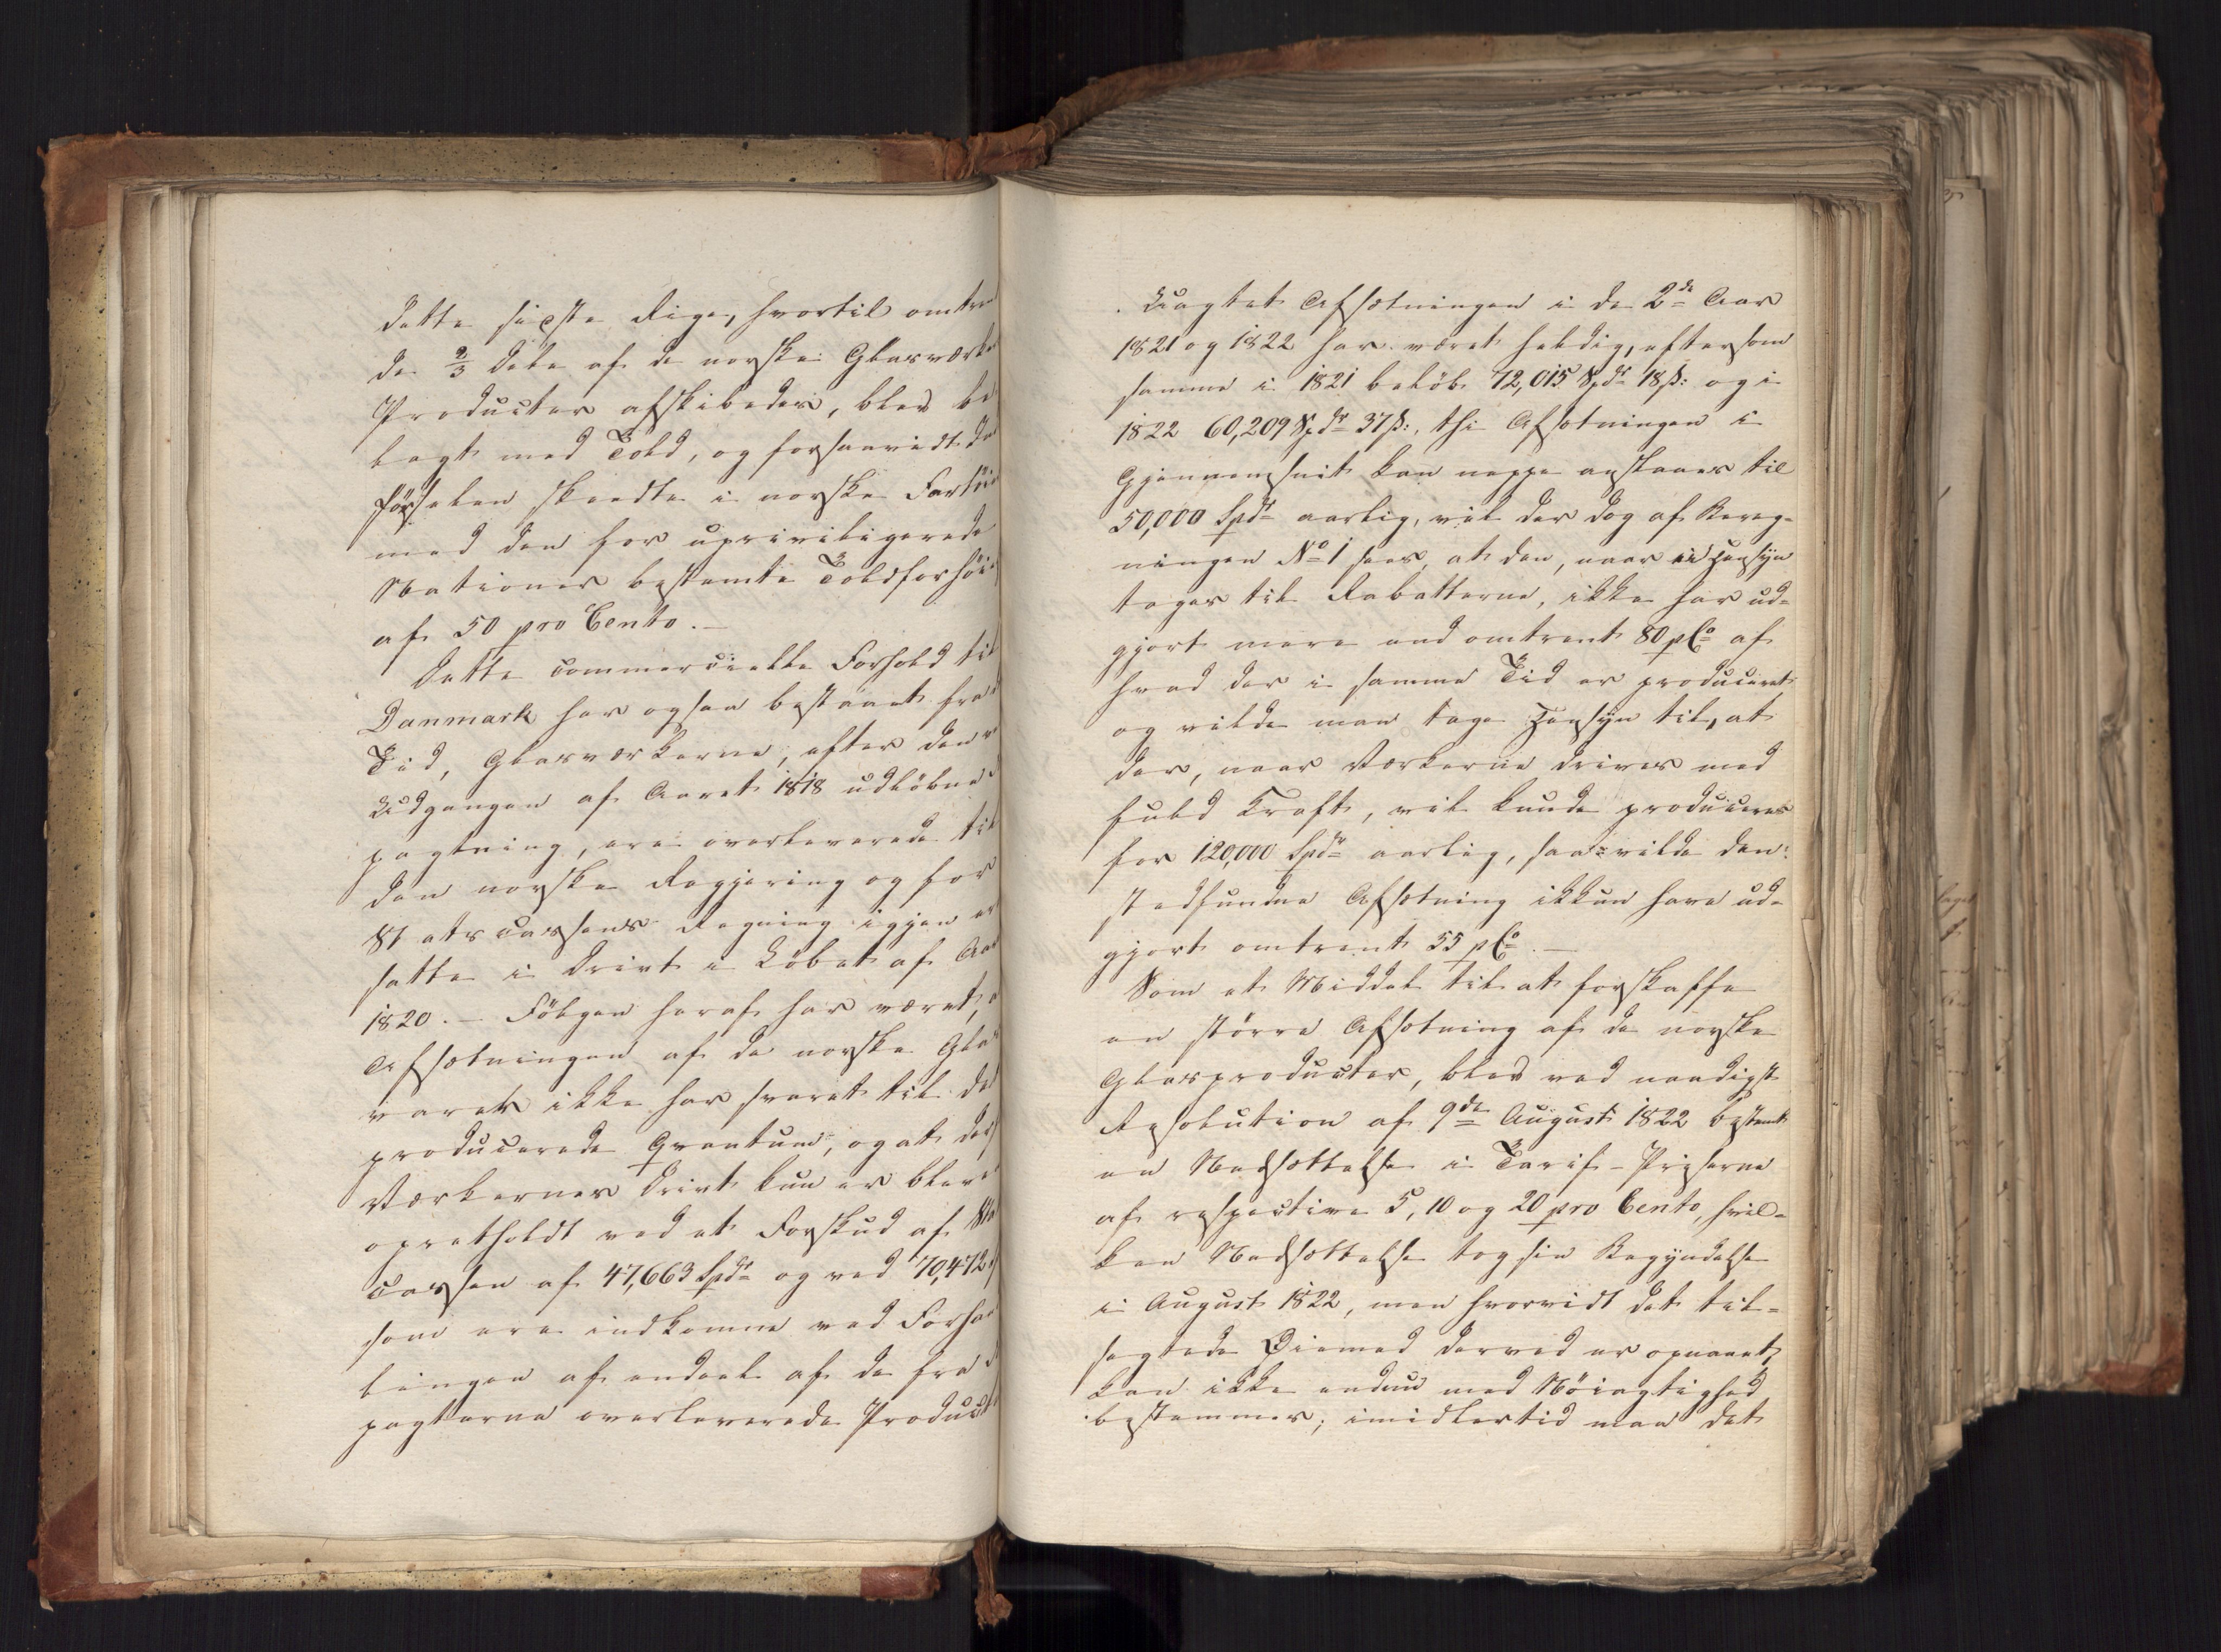 dette sidste Rige, hvortil omtren
de 2/3 Dele af de norske Glasværke
Producter afskibedes, blev be
lagt med Told, og forsaavidt Ud
førselen skeedte i norske Fartøie
med den for upriviligerede
Nationer bestemte Toldforhøie
af 50 pro Cento.-
Dette commercielle Forhold til
Danmark har ogsaa bestaaet fra
Tid, Glasværkerne, efter den
Udgangen af Aaret 1818 udløbne
pagtning, ere overleverede til
den norske Regjering og for
Statscassens Regning igjen er
satte i Drivt i Løbet af Aar
1820. - Følgen heraf har været, a
Afsætningen af de norske Glas
varer ikke har svaret til det
producerede Qvantum, og at des
Værkernes Drivt kun er bleve
opretholdt ved et Forskud af Sta
cassen af 47,663 Spd. og ved 70,472
som ere indkomne ved Forhan
lingen af endeel af de fra
pagterne overleverede Product
Uagtet Afsætningen i de 2de Aar
1821 og 1822 har været heldig, eftersom
samme i 1821 beløb 72,015 Spdr 18 ß: og i
1822 60,209 Spdr 37 ß:, thi Afsætningen i
Gjennemsnit kan neppe anslaaes til
50,000 Spdr aarlig, vil der dog af Bereg-
ningen No 1 sees, at den, naar ei Hensyn
tages til Rabatterne, ikke har ud-
gjort mere end omtrent 80 pCo af
hvad der i samme Tid er produceret
og vilde man tage Hensyn til, at
der, naar Værkerne drives med
fuld Kraft, vil kunde produceres
for 120,000 Spdr aarlig, saa vilde den
stedfundne Afsætning ikkun have ud-
gjort omtrent 55 pCo.-
Som et Middel til at forskaffe
en større Afsætning af de norske
Glasproducter, blev ved naadigst
Resolution af 9de August 1822 bestemt
en Nedsættelse i Tarif-Priserne
af respective 5, 10 og 20 pro Cento, hvil-
ken Nedsættelse tog sin Begyndelse
i August 1822, men hvorvidt det til-
sigtede Øiemed derved er opnaaet,
kan ikke endnu med Nøiagtighed
bestemmes; imidlertid maa det